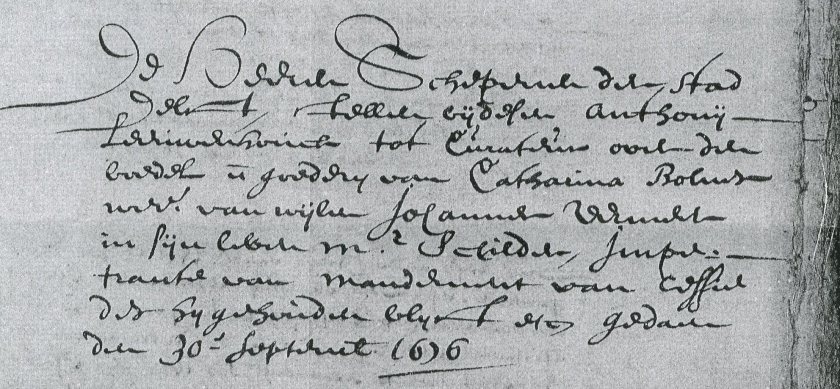 De Heeren Schepenen der Stad
Delft stellen bij desen Anthonij
Leeuwenhoeck tot Curateur over den
boedel en goederen van Catharina Bolnes
wed.e van wijlen Johannes Vermeer
in sijn leven mr. Schilder, Impe-
trante van mandement van Cessie
des hij gehouden blijft etc. gedaen
den 30e Septembr. 1676